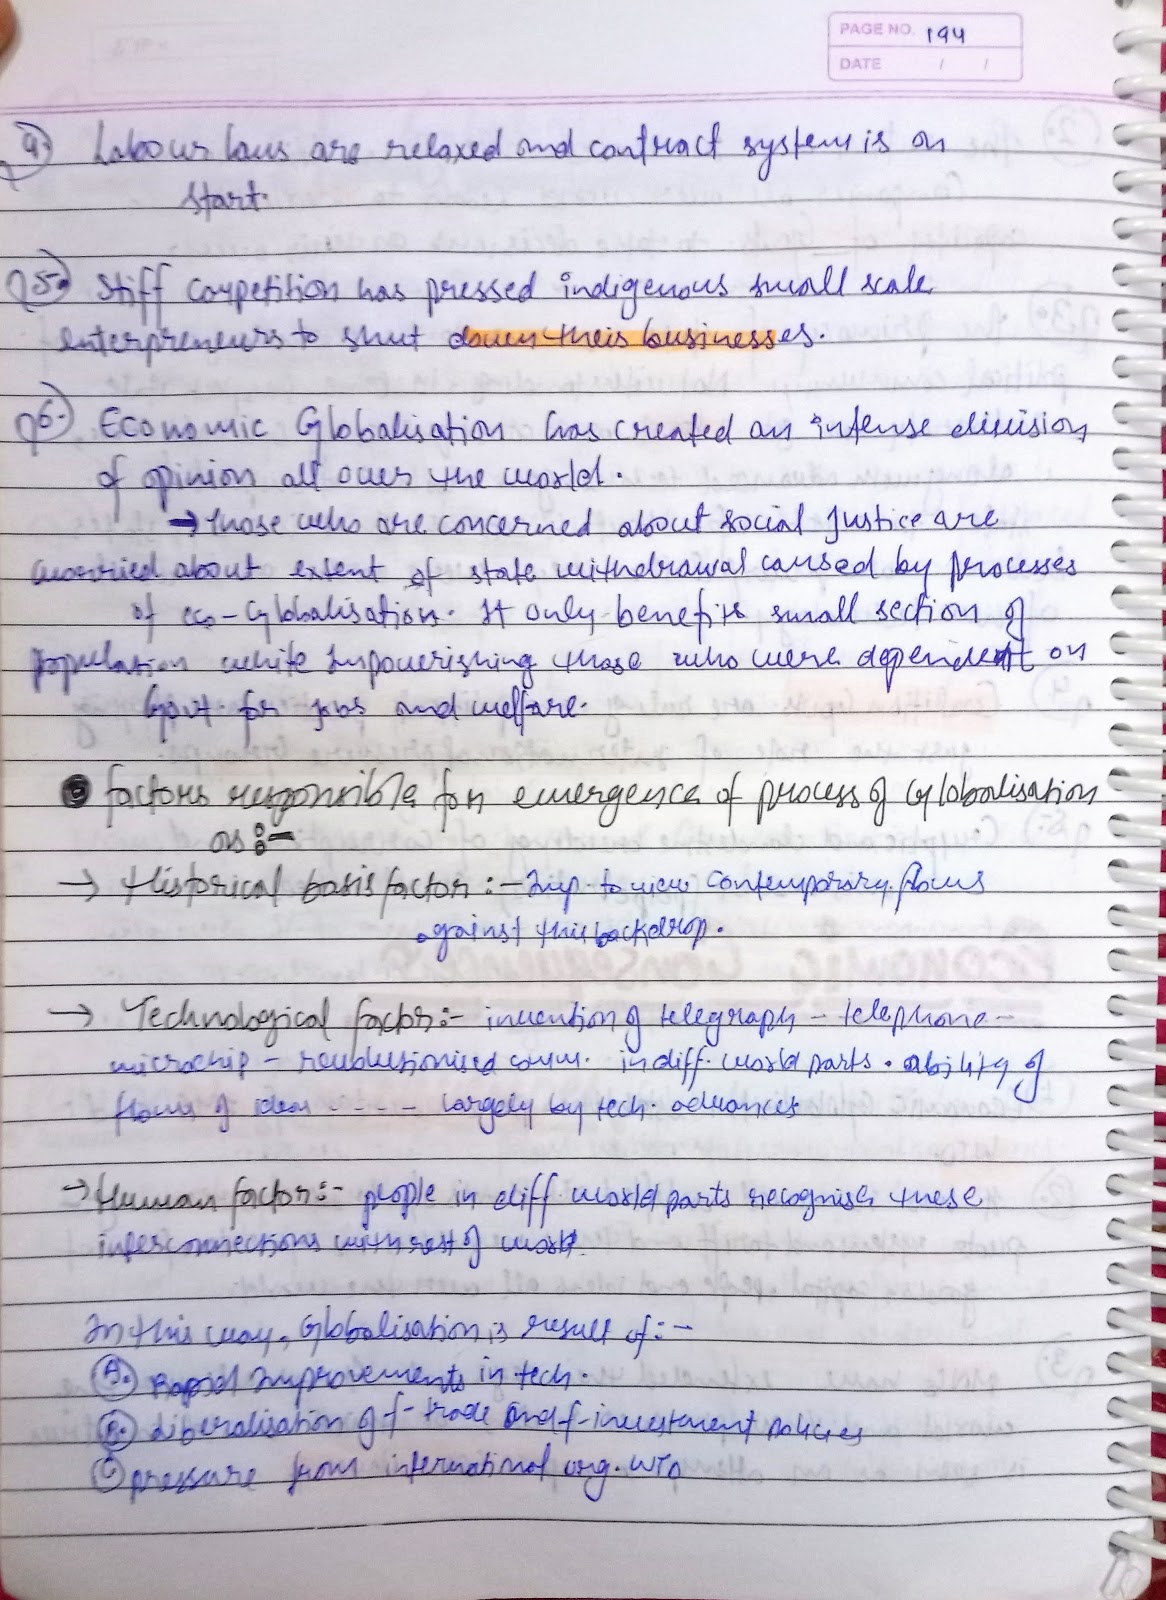 PAGE NO. 194
DATE / /
4. Labour laws are relaxed and contract system is on
start.
5. Stiff competition has pressed indigenous small scale
enterpreneurs to shut down their businesses.
6. Economic Globalisation has created an intense division
of opinion all over the world.
→ those who are concerned about social justice are
worried about extent of state withdrawal caused by processes
of eco-Globalisation. It only benefits small section of
population while impoverishing those who were dependent on
Govt. for jobs and welfare.
factors responsible for emergence of process of Globalisation
as :-
→ Historical basis factor :- Imp. to view contemporary flows
against this backdrop.
→ Technological factor :- invention of telegraph - telephone -
microchip - revolutionised comm. in diff. world parts. ability of
flows of ideas - - - - largely by tech. advances
→ Human factor :- people in diff world parts recognise these
interconnections with rest of world.
In this way, Globalisation is result of :-
A. Rapid Improvements in tech.
B. liberalisation of f- trade and f-investment policies
C pressure from international org. WTO